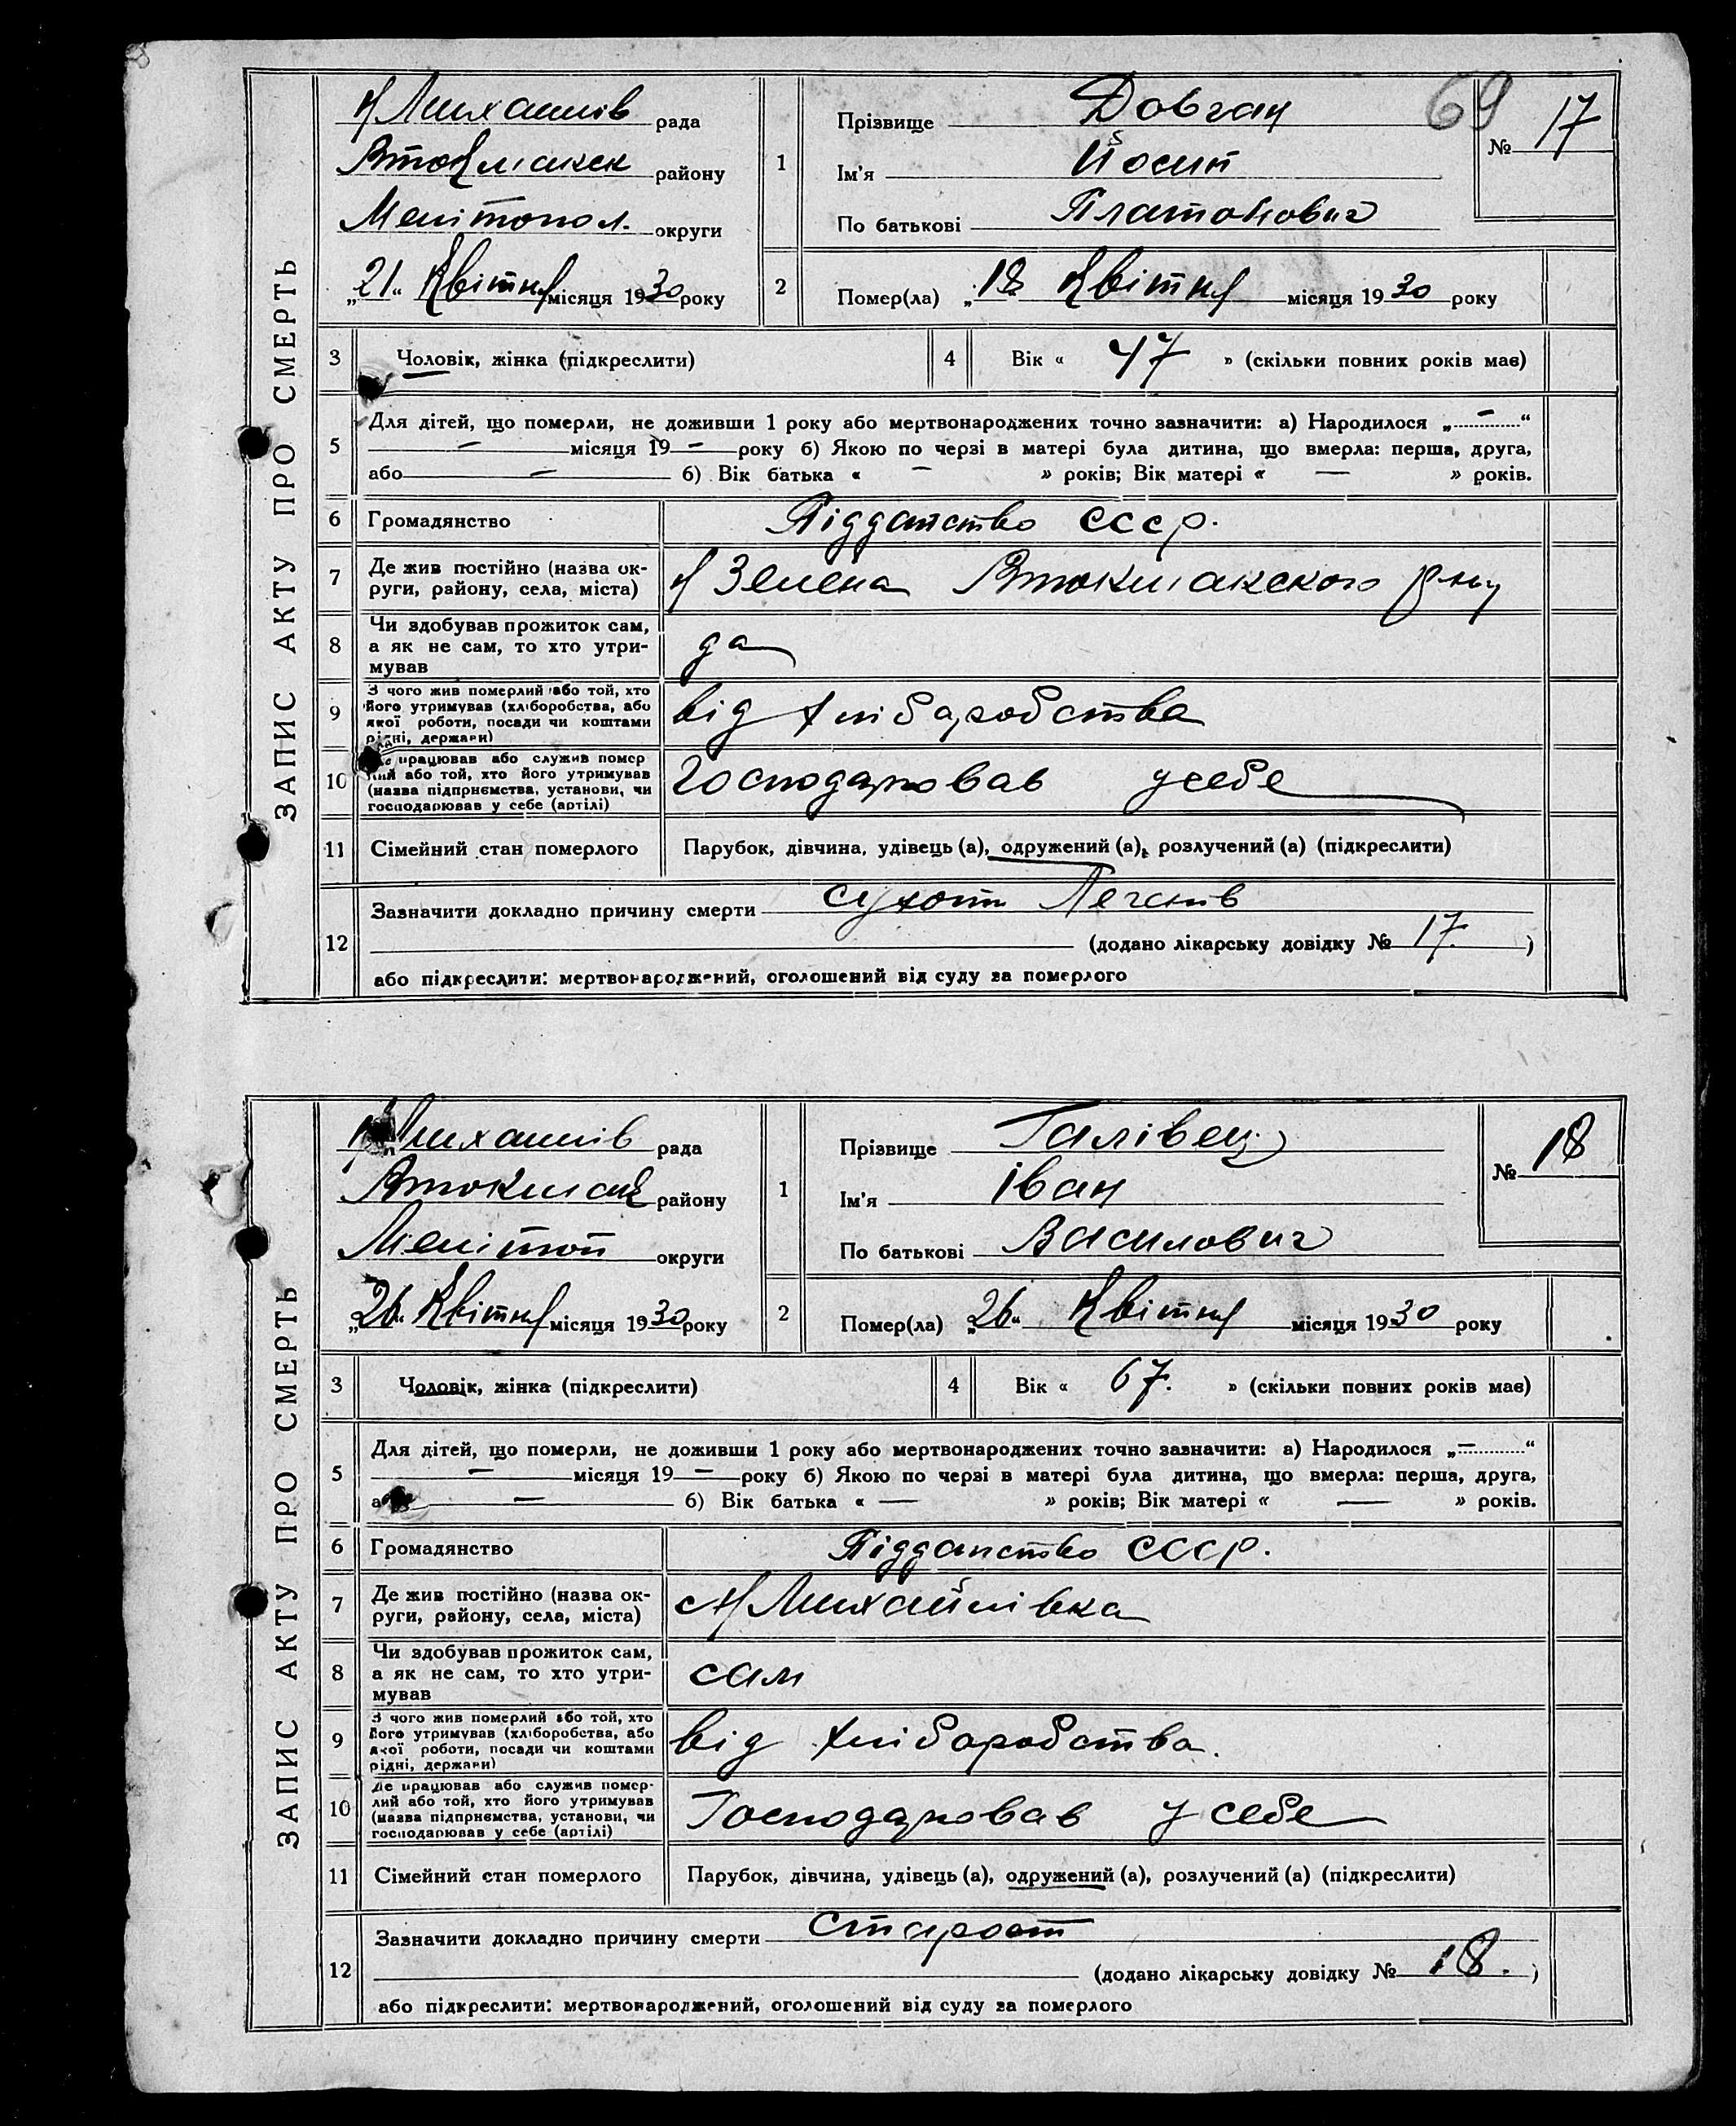 69
ЗАПИС АКТУ ПРО СМЕРТЬ
Н Михайлів рада
Втокмакск району
Мелітопол. округи
„21“ Квітня місяця 1930 року
1
Прізвище Довган
Ім'я Йосип
По батькові Платонович
№ 17
2
Помер(ла) „18 Квітня місяця 1930 року
3 Чоловік, жінка (підкреслити)
4 Вік « 47 » (скільки повних років має)
5
Для дітей, що померли, не доживши 1 року або мертвонароджених точно зазначити: а) Народилося „—“
— місяця 19 — року б) Якою по черзі в матері була дитина, що вмерла: перша, друга,
або — б) Вік батька « — » років; Вік матері « — » років.
6 Громадянство Підданство СССР.
7 Де жив постійно (назва ок-
руги, району, села, міста) Н Зелена Втокмакского р-ну
8 Чи здобував прожиток сам,
а як не сам, то хто утри-
мував да
9 З чого жив померлий або той, хто
його утримував (хліборобства, або
якої роботи, посади чи коштами
рідні, держави) від хлібаробства
10 працював або служив помер
лий або той, хто його утримував
(назва підприємства, установи, чи
господарював у себе (артілі) Господарював усебе
11 Сімейний стан померлого Парубок, дівчина, удівець (а), одружений (а), розлучений (а) (підкреслити)
12
Зазначити докладно причину смерти сухоти Легенів
(додано лікарську довідку № 17. )
або підкреслити: мертвонароджений, оголошений від суду за померлого
ЗАПИС АКТУ ПРО СМЕРТЬ
Михайлів рада
Втокмак району
Мелітоп округи
„26“ Квітня місяця 1930 року
1
Прізвище Галівец
Ім'я Іван
По батькові Василович
№ 18
2
Помер(ла) „26“ Квітня місяця 1930 року
3 Чоловік, жінка (підкреслити)
4 Вік « 67. » (скільки повних років має)
5
Для дітей, що померли, не доживши 1 року або мертвонароджених точно зазначити: а) Народилося „—“
— місяця 19 — року б) Якою по черзі в матері була дитина, що вмерла: перша, друга,
— б) Вік батька « — » років; Вік матері « — » років.
6 Громадянство Підданство СССР.
7 Де жив постійно (назва ок-
руги, району, села, міста) с Н Михайлівка
8 Чи здобував прожиток сам,
а як не сам, то хто утри-
мував сам
9 З чого жив померлий або той, хто
його утримував (хліборобства, або
якої роботи, посади чи коштами
рідні, держави) від хлібаробства.
10 Де працював або служив помер-
лий або той, хто його утримував
(назва підприємства, установи, чи
господарював у себе (артілі) Господарював у себе
11 Сімейний стан померлого Парубок, дівчина, удівець (а), одружений (а), розлучений (а) (підкреслити)
12
Зазначити докладно причину смерти старост
(додано лікарську довідку № 18. )
або підкреслити: мертвонароджений, оголошений від суду за померлого